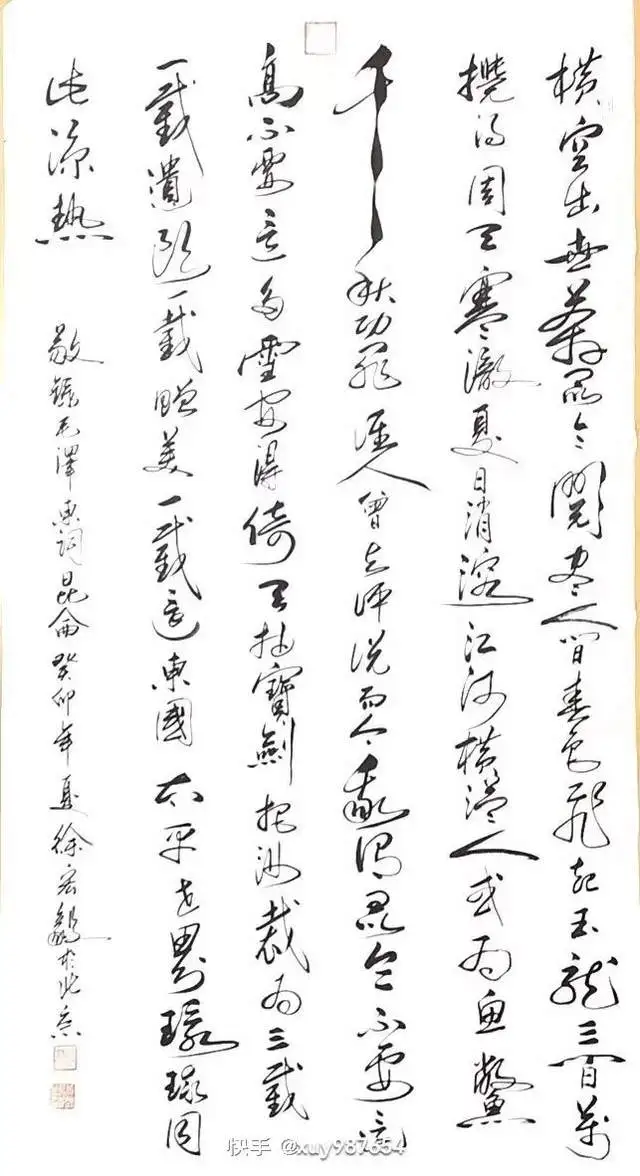 橫空出世莽昆仑閱尽人间春色飛起玉龍三百萬
攪得周天寒澈夏日消溶江河橫溢人或为魚鱉
千秋功罪谁人曾与评说而今我谓昆仑不要这
高不要这多雪安得倚天抽寶劍把汝裁为三截
一截遺欧一截贈美一截还東國太平世界環球同
此涼熱
敬錄毛澤東詞昆侖癸卯年夏徐宏毅於北京
快手 @xuy987654